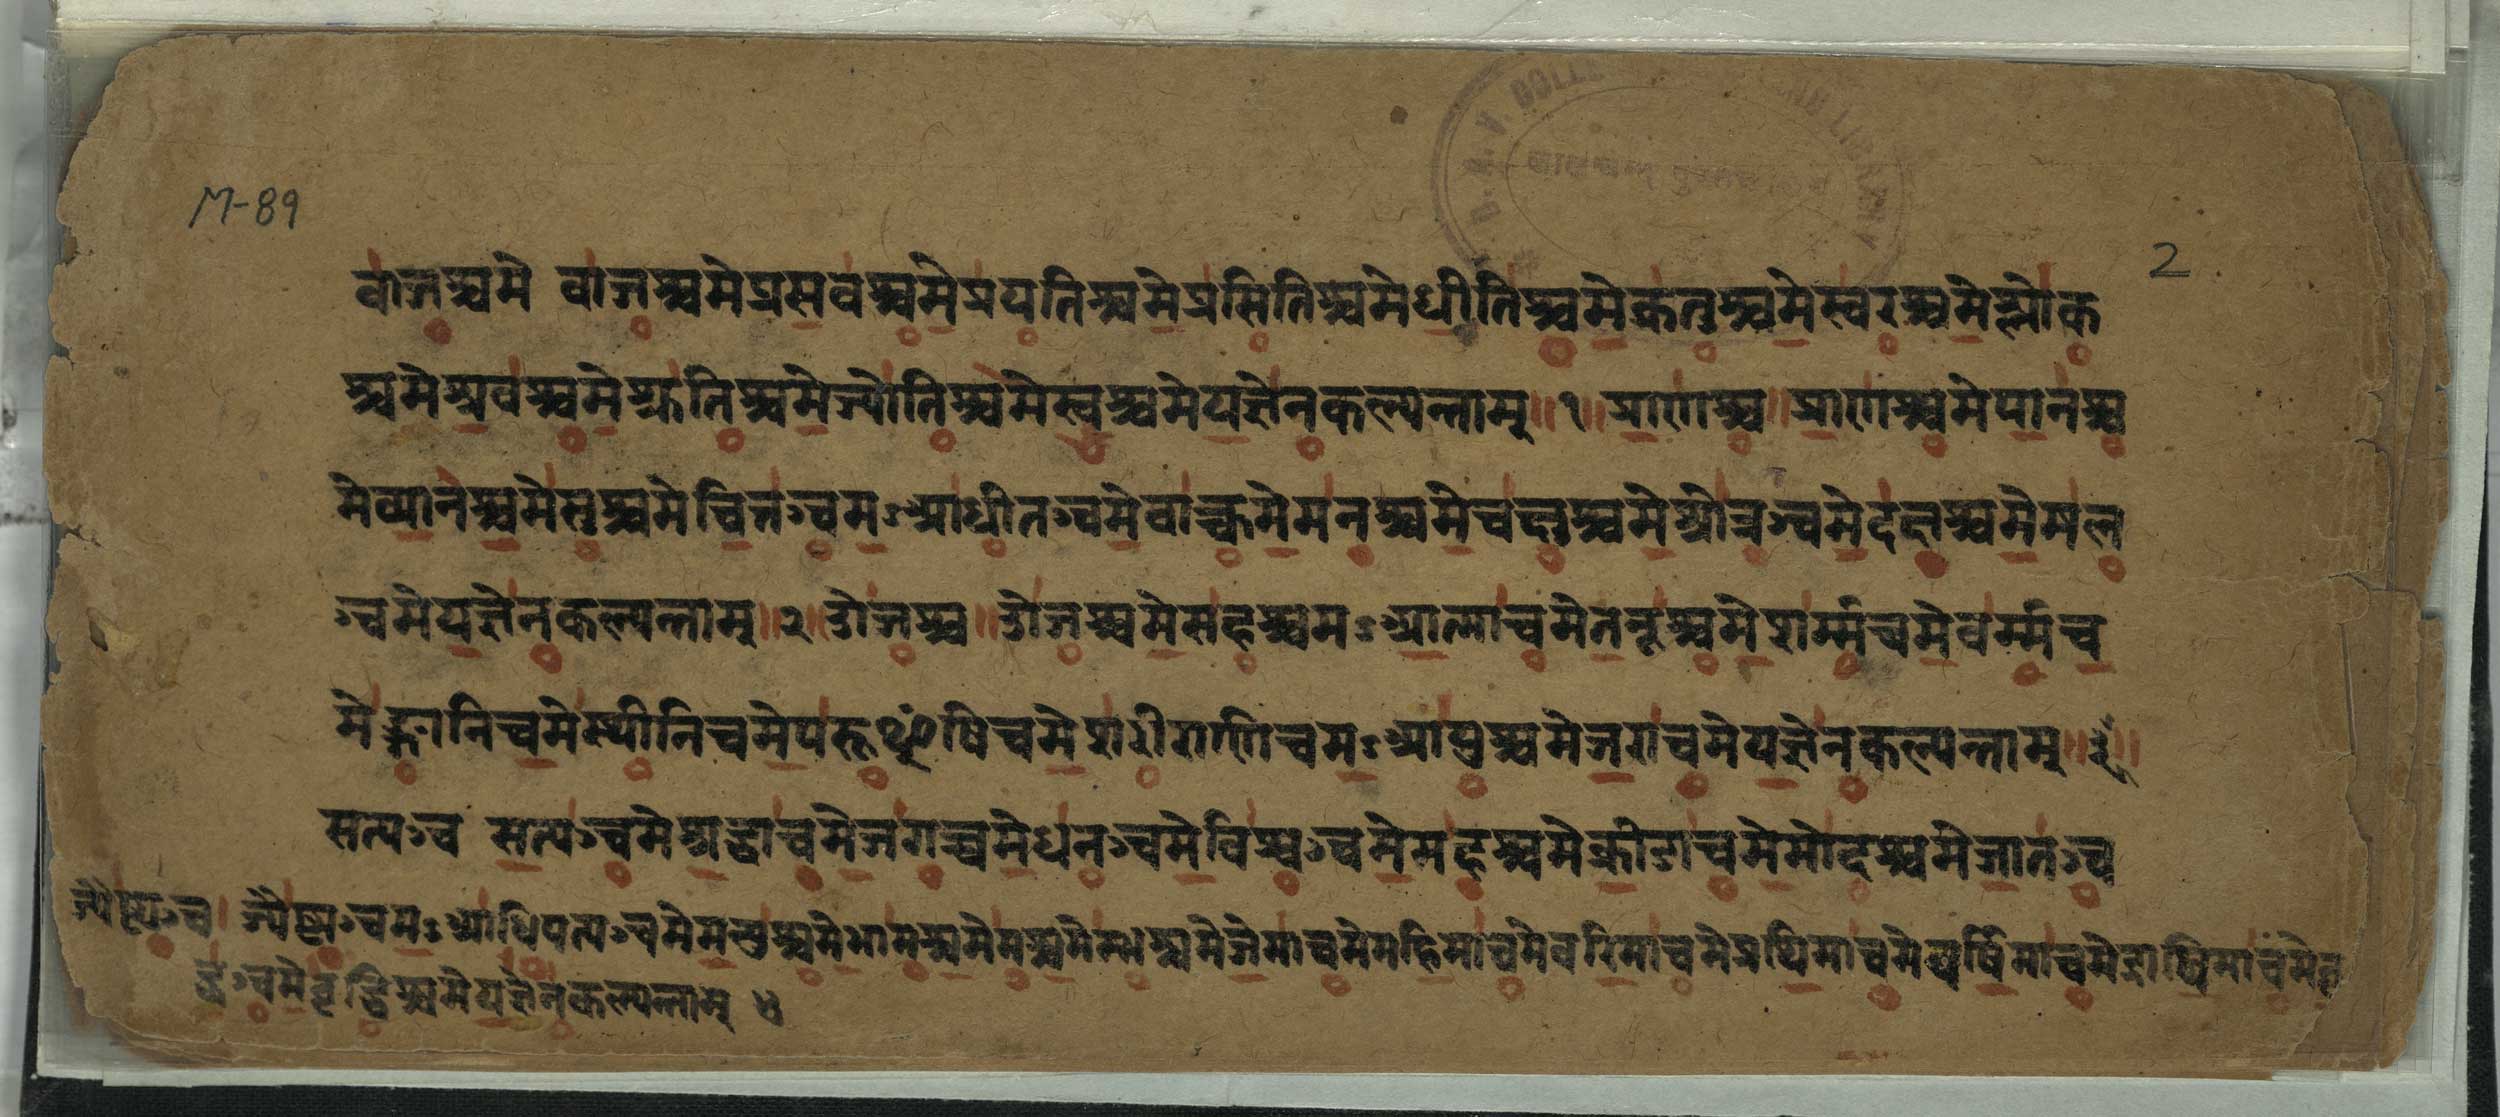 M-89
D.A.V. COLLE LIBRARY
2
वाजश्चमे वाजश्चमेप्रसवश्चमेप्रयतिश्चमेप्रसितिश्चमेधीतिश्चमेक्रतुश्चमेस्वरश्चमेश्लोक
श्चमेश्रवश्चमेश्रुतिश्चमेज्योतिश्चमेस्वश्चमेयज्ञेनकल्पन्ताम्॥१॥प्राणश्च॥प्राणश्चमेपानश्च
मेव्यानश्चमेसुश्चमेचित्तञ्चमऽआधीतञ्चमेवाक्चमेमनश्चमेचक्षुश्चमेश्रोत्रञ्चमेदक्षश्चमेबल
ञ्चमेयज्ञेनकल्पन्ताम्॥२॥ओजश्च॥ओजश्चमेसहश्चमऽआत्माचमेतनूश्चमेशर्म्मचमेवर्म्मच
मेङ्गानिचमेस्थीनिचमेपरूᳪषिचमेशरीराणिचमऽआयुश्चमेजराचमेयज्ञेनकल्पन्ताम्॥३॥
सत्यञ्च सत्यञ्चमेश्रद्धाचमेजगच्चमेधनञ्चमेविश्वञ्चमेमहश्चमेक्रीडाचमेमोदश्चमेजातञ्च
ज्यैष्ठ्यञ्च।ज्यैष्ठ्यञ्चमऽआधिपत्यञ्चमेमन्युश्चमेभामश्चमेमश्चमेम्भश्चमेजेमाचमेमहिमाचमेवरिमाचमेप्रथिमाचमेवर्षिमाचमेद्राघिमाचमेवृ
द्धञ्चमेवृद्धिश्चमेयज्ञेनकल्पन्ताम् ४